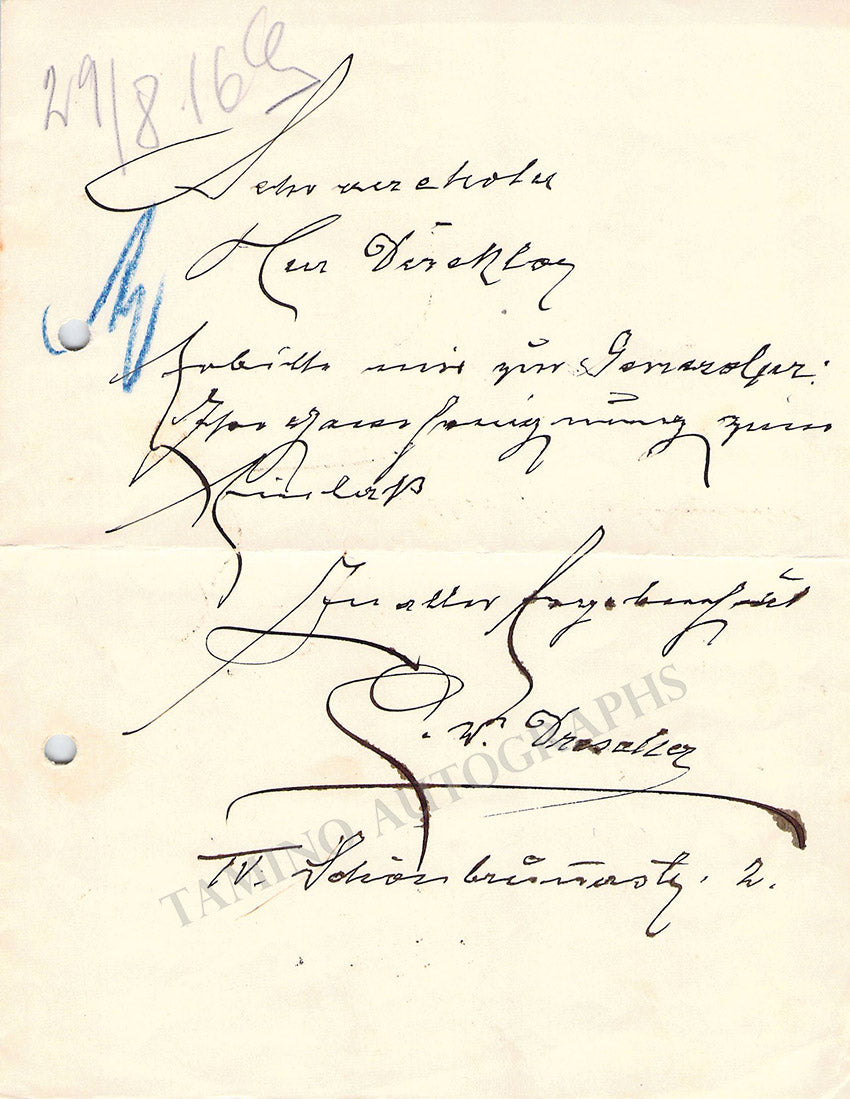 29/8.16
Sehr verehrter
Herr Direktor
Erbitte mir zur Generalpr:
Ihre Genehmigung zum
Einlaß
In aller Ergebenheit
C. W. Drescher
IV. Schönbrunnerstr. 2.
TAMINO AUTOGRAPHS